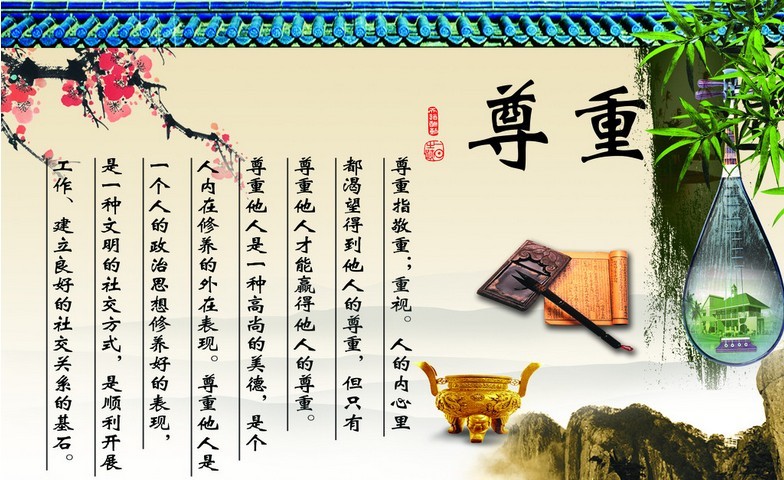 尊重
尊重指敬重；重视。人的内心里
都渴望得到他人的尊重，但只有
尊重他人才能赢得他人的尊重。
尊重他人是一种高尚的美德，是个
人内在修养的外在表现。尊重他人是
一个人的政治思想修养好的表现，
是一种文明的社交方式，是顺利开展
工作、建立良好的社交关系的基石。